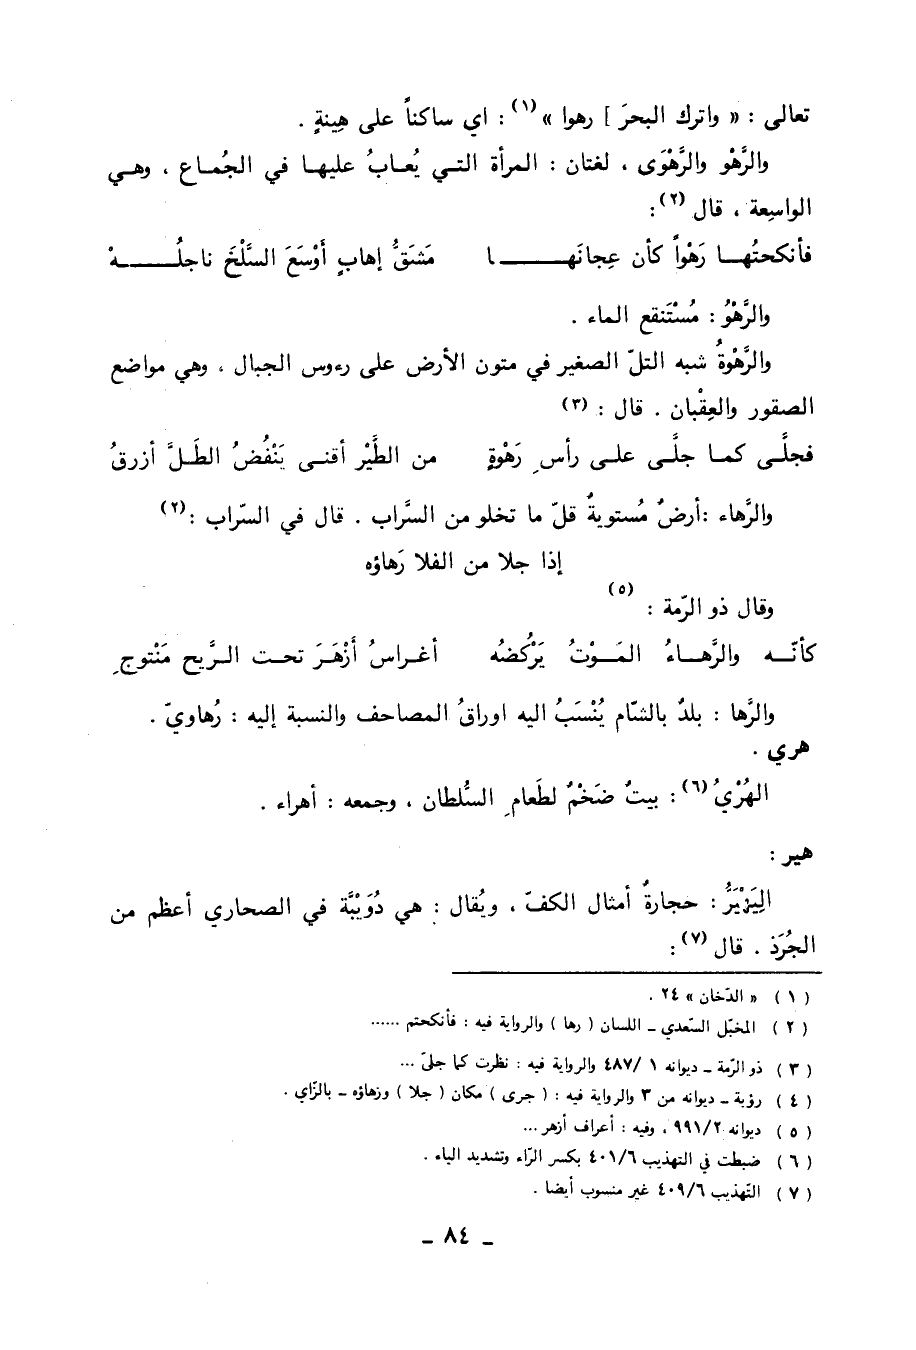 تعالى : « واترك البحرَ ] رهوا » (١) : اي ساكناً على هِينةٍ .
والرَّهْو والرَّهْوَى ، لغتان : المرأة التـي يُعـابُ عليهـا في الجُمـاع ، وهـي
الواسِعة ، قال (٢) :
فأنكحتُهـا رَهْواً كأن عِجانَهــــا مَشَقُّ إهابٍ أَوْسَعَ السَّلْخَ ناجلُــــهْ
والرَّهْوُ : مُسْتَنقع الماء .
والرَّهْوةُ شبه التلّ الصغير في متون الأرض على رءوس الجبال ، وهي مواضع
الصقور والعِقْبان . قال : (٣)
فجلَّـى كمـا جلَّـى علـى رأسِ رَهْوةٍ من الطَّيْر أقنـى يَنْفُضُ الطَلَّ أزرقُ
والرَّهاء :أرضٌ مُستويةٌ قلّ ما تخلو من السَّراب . قال في السّراب : (٢)
إذا جلا من الفلا رَهاؤه
وقال ذو الرّمة : (٥)
كأنّـه والرَّهـاءُ المَـوْتُ يَرْكُضُه أغـراسُ أَزْهَـرَ تحـت الـرَّيح مَنْتوجِ
والرَّها : بلدٌ بالشّام يُنْسَبُ اليه اوراقُ المصاحف والنسبة إليه : رُهاويّ .
هري .
الهُرْيُ (٦) : بيتٌ ضَخْمٌ لطَعامِ السُّلطان ، وجمعه : أهراء .
هير :
اليَزْيَرُّ : حجارةٌ أمثال الكفّ ، ويُقال : هي دُوَيْبَّة في الصحاري أعظم من
الجُرَذ . قال (٧) :
( ١ ) « الدّخان » ٢٤ .
( ٢ ) المخبّل السّعدي ـ اللسان ( رها ) والرواية فيه : فأنكحتم ......
( ٣ ) ذو الرّمة ـ ديوانه ١ /٤٨٧ والرواية فيه : نظرت كما جلىّ ...
( ٤ ) رؤبة ـ ديوانه من ٣ والرواية فيه : ( جرى ) مكان ( جلا ) وزهاؤه ـ بالزّاي .
( ٥ ) ديوانه ٩٩١/٢ ، وفيه : أعراف أزهر ...
( ٦ ) ضبطت في التهذيب ٤٠١/٦ بكسر الرّاء وتشديد الياء .
( ٧ ) التّهذيب ٤٠٩/٦ غير منسوب أيضا .
ـ ٨٤ ـ